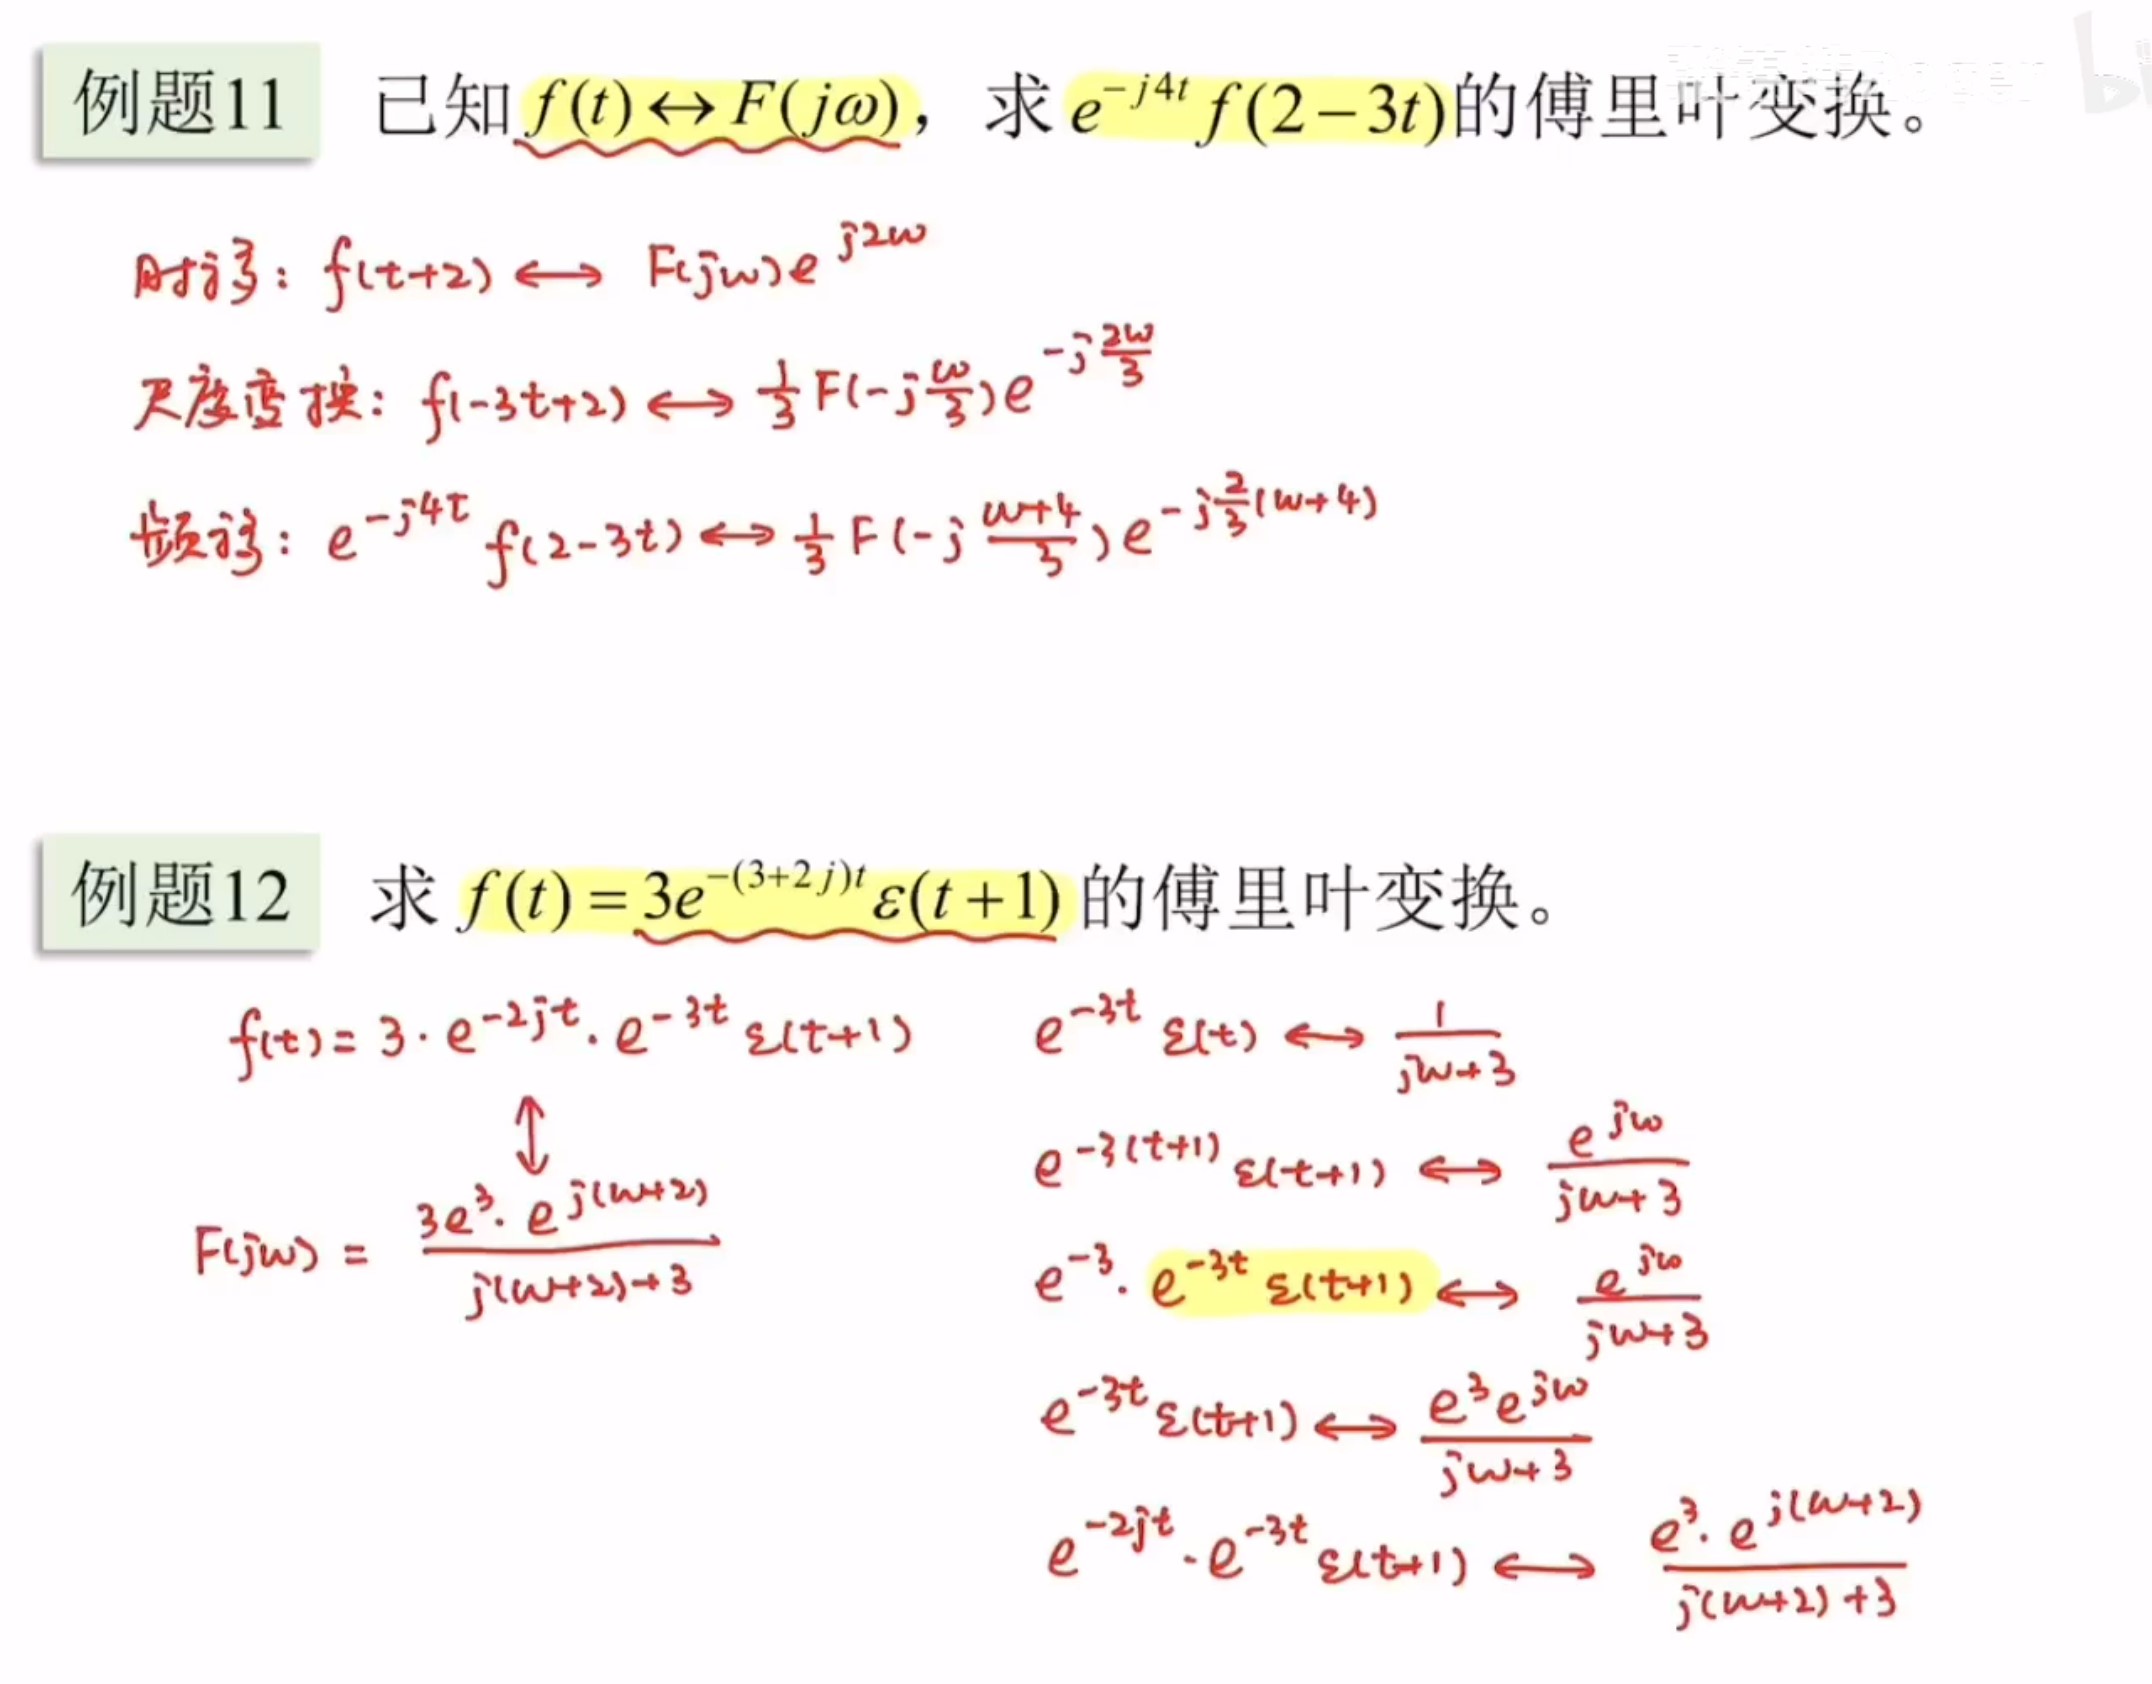 例题11 已知 f(t)↔F(jω)，求 e^{-j4t} f(2-3t)的傅里叶变换。
时移：f(t+2) ↔ F(jω)e^{j2ω}
尺度变换：f(-3t+2) ↔ \frac{1}{3} F(-j\frac{ω}{3})e^{-j\frac{2ω}{3}}
频移：e^{-j4t} f(2-3t) ↔ \frac{1}{3} F(-j\frac{ω+4}{3})e^{-j\frac{2}{3}(ω+4)}
例题12 求 f(t)=3e^{-(3+2j)t} ε(t+1) 的傅里叶变换。
f(t)= 3·e^{-2jt}·e^{-3t} ε(t+1)
↕
F(jω) = \frac{3e^{3}·e^{j(ω+2)}}{j(ω+2)+3}
e^{-3t} ε(t) ↔ \frac{1}{jω+3}
e^{-3(t+1)} ε(t+1) ↔ \frac{e^{jω}}{jω+3}
e^{-3}·e^{-3t} ε(t+1) ↔ \frac{e^{jω}}{jω+3}
e^{-3t} ε(t+1) ↔ \frac{e^{3}e^{jω}}{jω+3}
e^{-2jt}·e^{-3t} ε(t+1) ↔ \frac{e^{3}·e^{j(ω+2)}}{j(ω+2)+3}